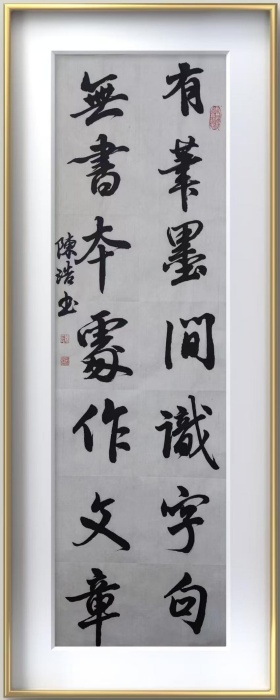 有筆墨間識字句
無書本處作文章
陳浩书